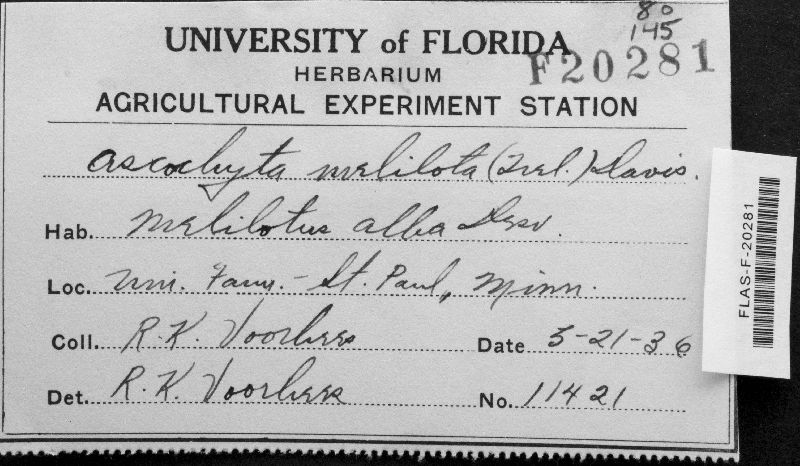 80
145
UNIVERSITY of FLORIDA
F20281
HERBARIUM
AGRICULTURAL EXPERIMENT STATION
Ascochyta melilota (Trel.) Davis.
Hab. Melilotus alba Desv.
Loc. Uni. Farm. - St. Paul, Minn.
Coll. R.K. Voorhees Date 5-21-36
Det. R.K. Voorhees No. 11421
FLAS-F-20281